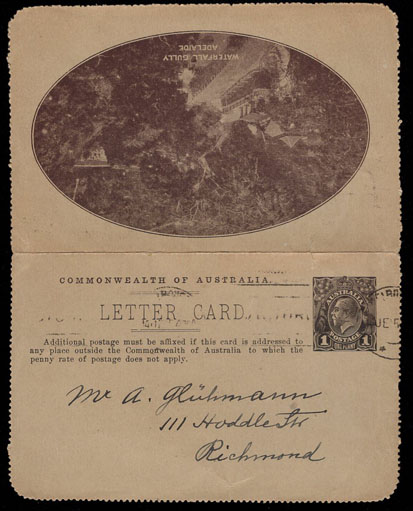 WATERFALL GULLY
ADELAIDE
COMMONWEALTH OF AUSTRALIA.
LETTER CARD
Additional postage must be affixed if this card is addressed to
any place outside the Commonwealth of Australia to which the
penny rate of postage does not apply.
AUSTRALIA
POSTAGE
1 ONE PENNY 1
Mr A. Glühmann
111 Hoddle Str
Richmond